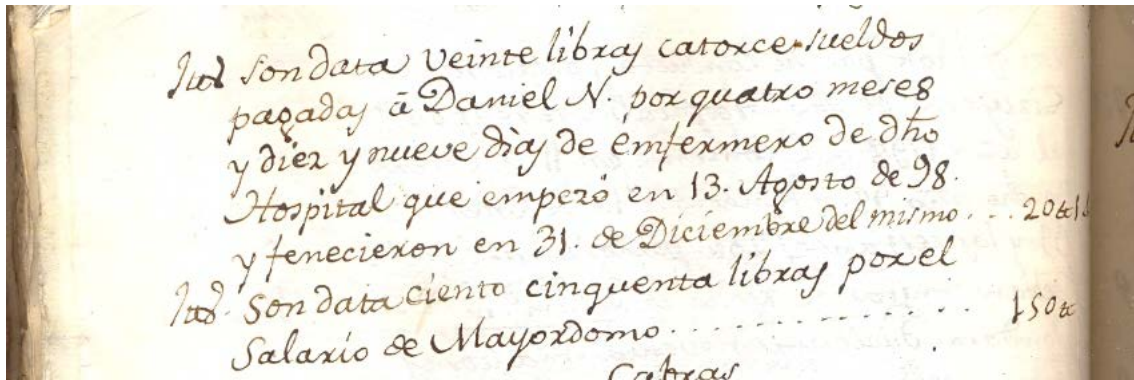 Itt. Son data veinte libras catorce sueldos
pagadas â Daniel N. por quatro meses
y diez y nueve dias de enfermero de dho
Hospital que empezó en 13. Agosto de 98.
y fenecieron en 31. de Diciembre del mismo . . . 20 tt 1
Itt. Son data ciento cinquenta libras por el
Salario de Mayordomo . . . . . . . . . . . . . . 150 tt
Cabras